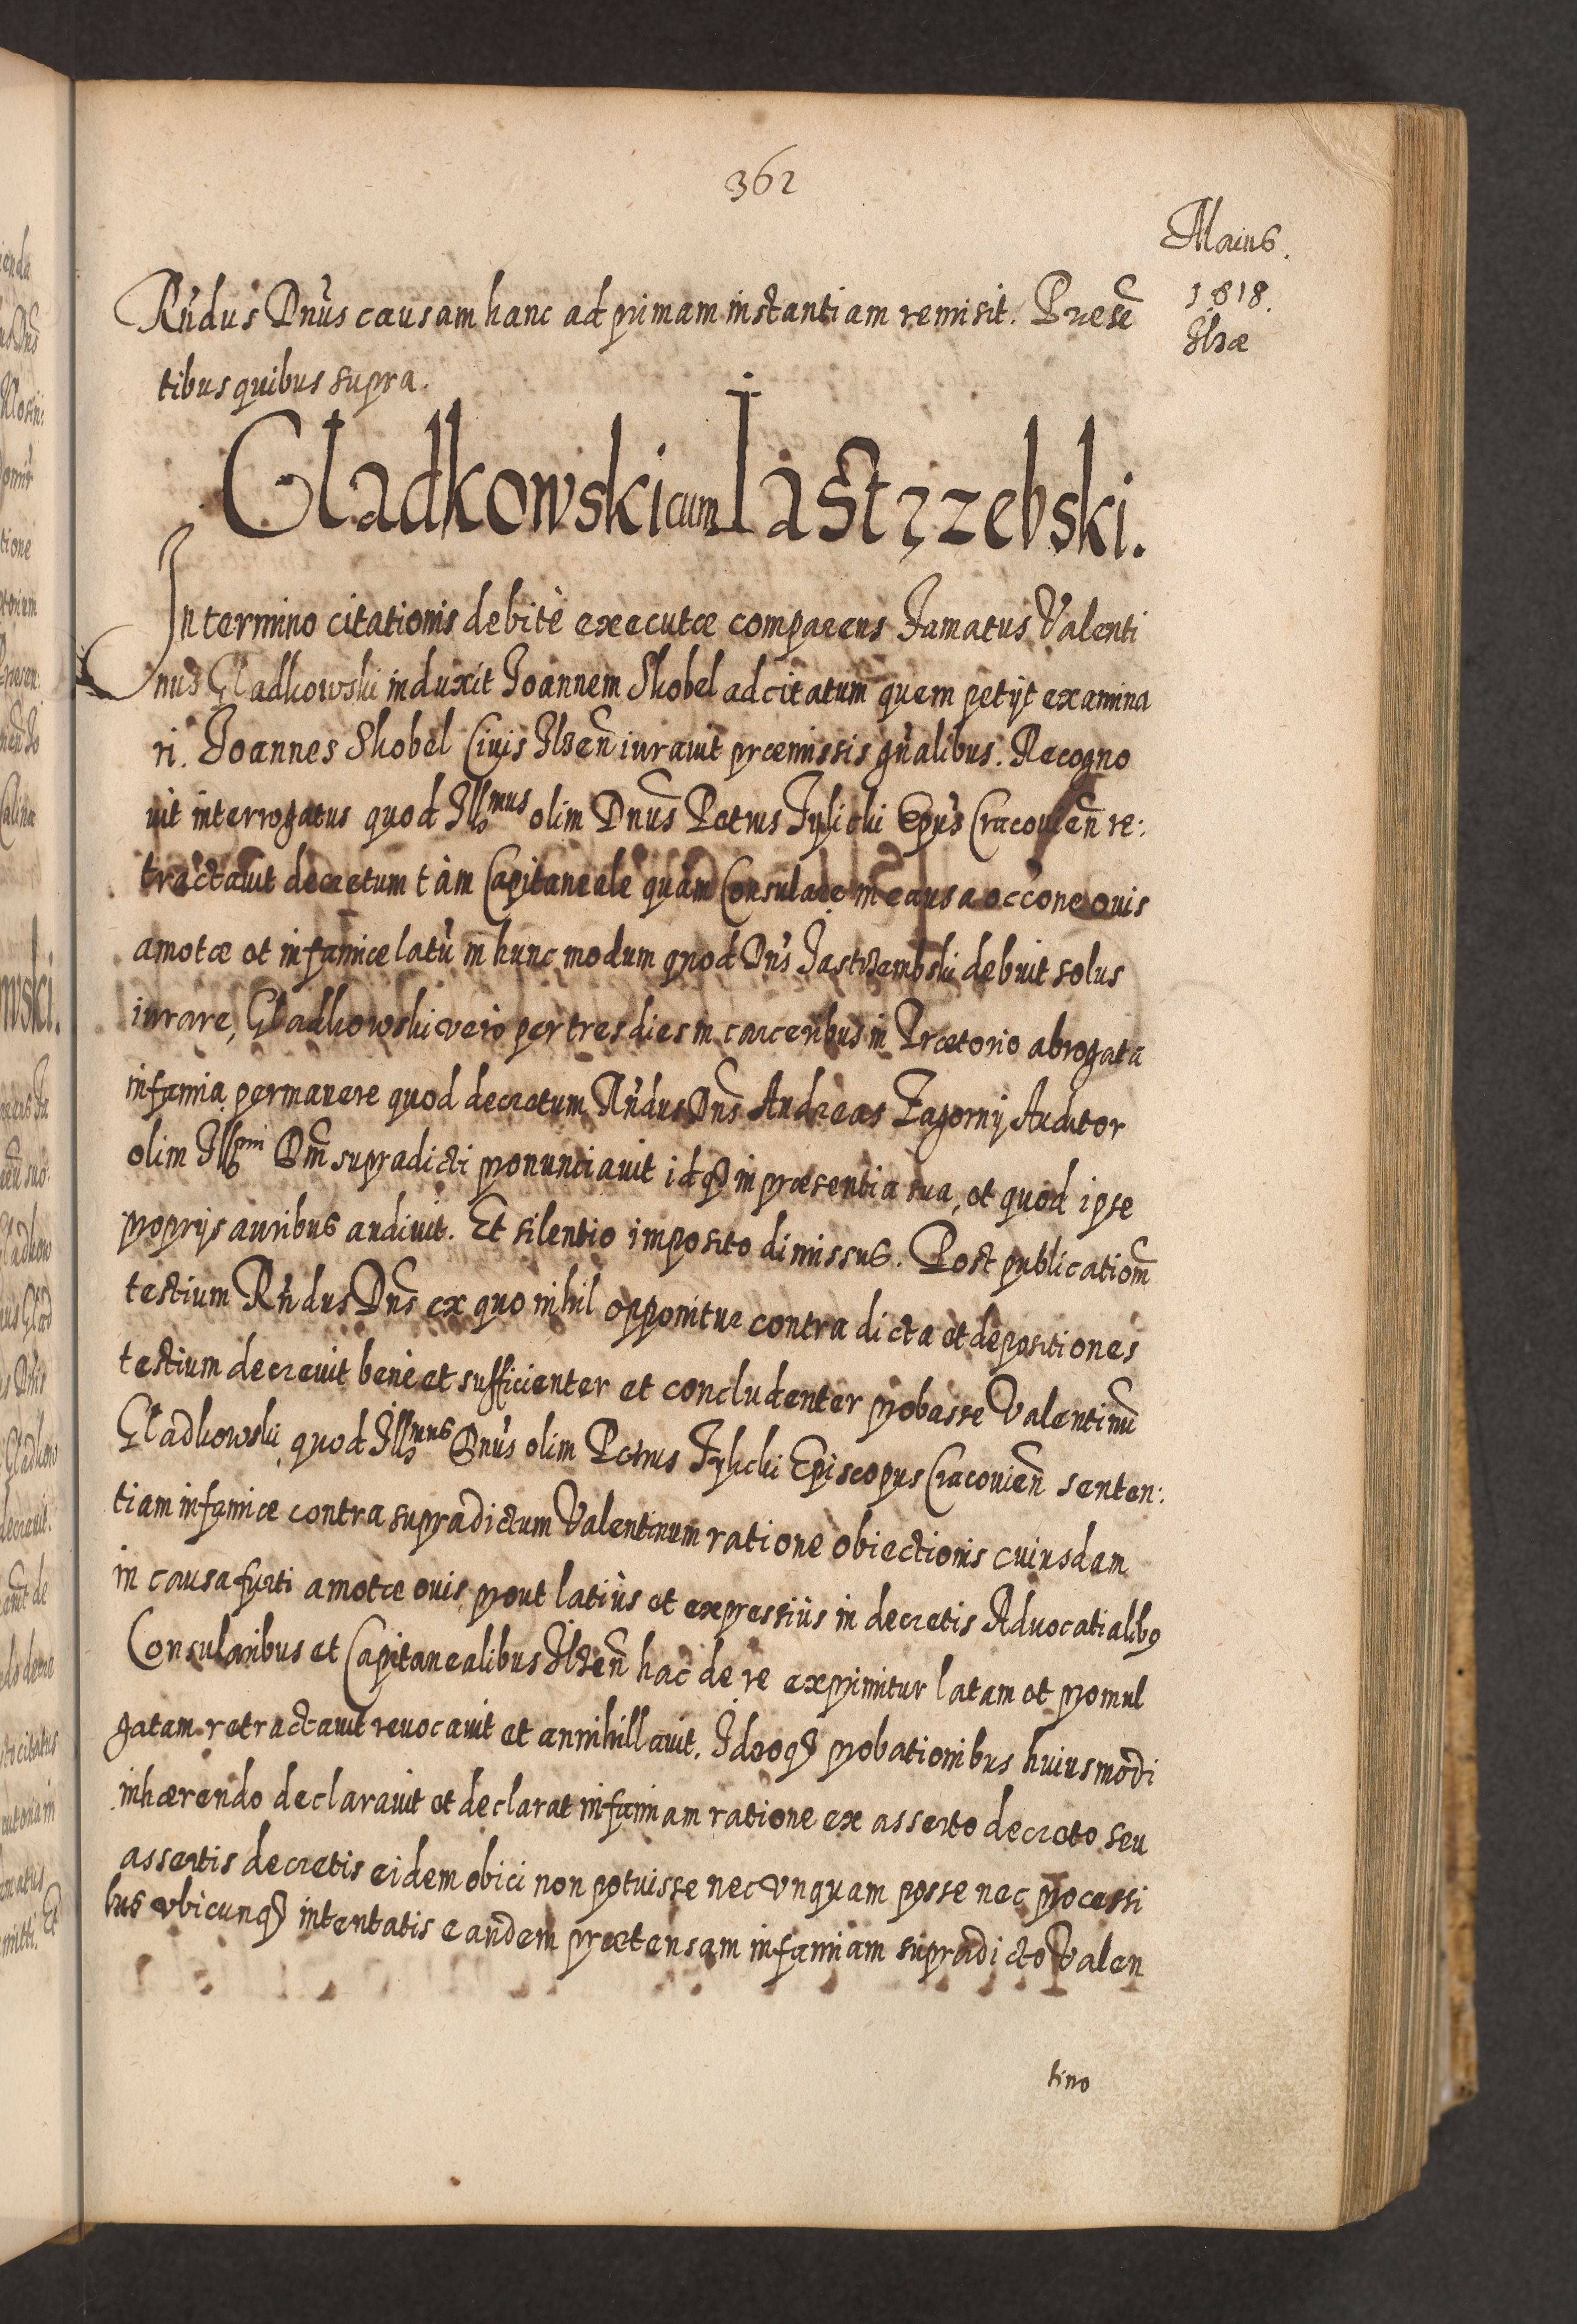 362
Maius.
1618.
Ilzæ
Rńdus Dnús causam hanc ad primam instantiam remisit. Præseñ
tibus quibus supra.
Gładkowski cum Iastrzebski.
In termino citationis debitè executæ comparens Famatus Valenti
nus Gładkowski induxit Joannem Skobel ad citatum quem petijt examina
ri. Joannes Skobel Civis Ilzeñ iuravit præmissis gńalibus. Recogno
vit interrogatus quod Illmus olim Dnús Petrus Tylicki Epús Cracovieñ re:
tractavit decretum tàm Capitaneale quàm Consulare in causa occóne ovis
amotæ et infamiæ latú in hunc modum quod Dńs Jastrzembski debuit solus
iurare, Gładkowski verò per tres dies in carceribus in Prætorio abrogata
infamia permanere quod decretum Rńdus Dńs Andreas Zagorny Auditor
olim Illmi Dñi supradicti pronunciavit idq3 in præsentia sua, et quod ipse
proprijs auribus audivit. Et silentio imposito dimissus. Post publicationẽ
testium Rńdus Dńs ex quo nihil opponitur contra dicta et depositiones
testium decrevit benè et sufficienter et concludenter probasse Valentinũ
Gładkowski quod Illmus Dnús olim Petrus Tylicki Episcopus Cracovieñ senten:
tiam infamiæ contra supradictum Valentinum ratione obiectionis cuiusdam
in causa furti amotæ ovis prout latiùs et expressiùs in decretis Advocatialib9
Consularibus et Capitanealibus Ilzeñ hac de re exprimitur latam et promul
gatam retractavit revocavit et annihillavit. Ideoq3 probationibus huiusmodi
inhærendo declaravit et declarat infamiam ratione ex asserto decreto seu
assertis decretis eidem obici non potuisse nec vnquam posse nec processi
bus vbicunq3 intentatis eandem prætensam infamiam supradicto Valen
tino